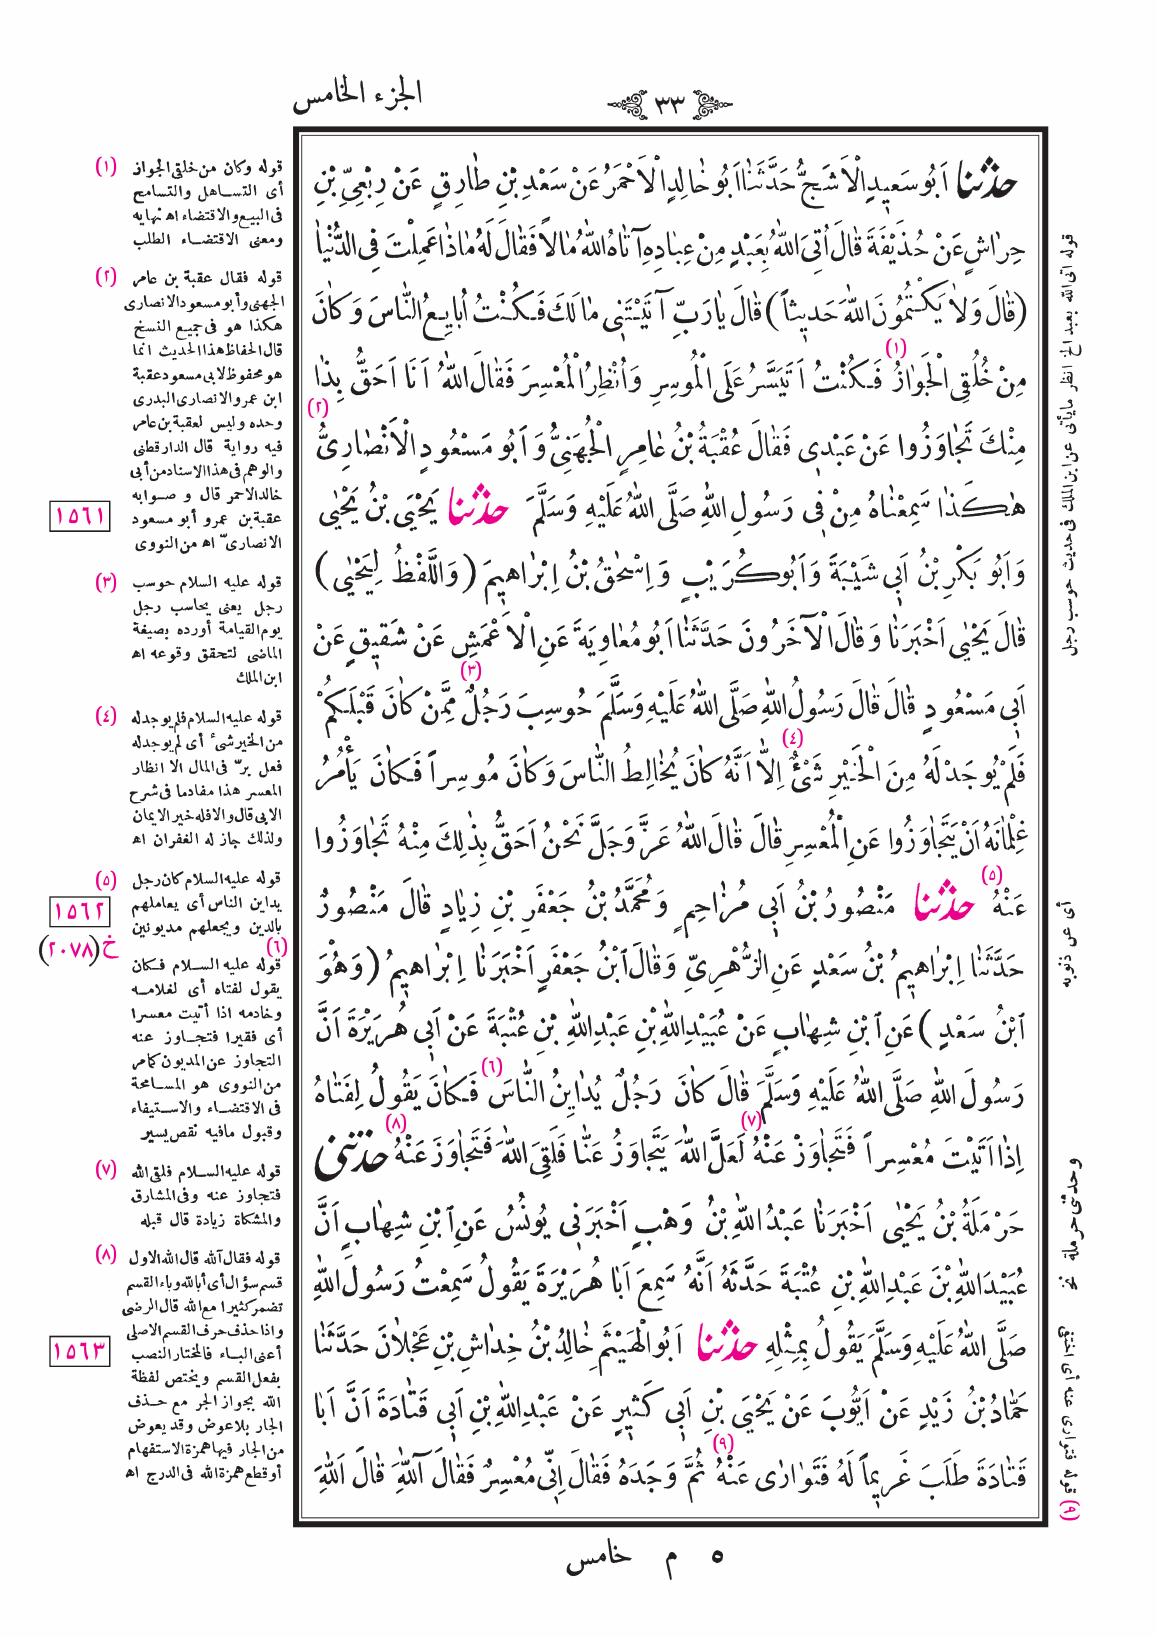 الجزء الخامس
٣٣
حَدَّثَنَا اَبُو سَعِيدٍ الْاَشَجُّ حَدَّثَنَا اَبُو خَالِدٍ الْاَحْمَرُ عَنْ سَعْدِ بْنِ طَارِقٍ عَنْ رِبْعِيِّ بْنِ
حِرَاشٍ عَنْ حُذَيْفَةَ قَالَ اُتِيَ اللّٰهُ بِعَبْدٍ مِنْ عِبَادِهِ آتَاهُ اللّٰهُ مَالاً فَقَالَ لَهُ مَاذَا عَمِلْتَ فِي الدُّنْيَا
(قَالَ وَلَا يَكْتُمُونَ اللّٰهَ حَدِيثاً) قَالَ يَا رَبِّ آتَيْتَنِي مَا لَكَ فَكُنْتُ اُبَايِعُ النَّاسَ وَكَانَ
مِنْ خُلُقِي الْجَوَازُ (١) فَكُنْتُ اَتَيَسَّرُ عَلَى الْمُوسِرِ وَاُنْظِرُ الْمُعْسِرَ فَقَالَ اللّٰهُ اَنَا اَحَقُّ بِذَا
مِنْكَ تَجَاوَزُوا عَنْ عَبْدِي فَقَالَ عُقْبَةُ بْنُ عَامِرٍ الْجُهَنِيُّ وَاَبُو مَسْعُودٍ الْاَنْصَارِيُّ (٢)
هٰكَذَا سَمِعْنَاهُ مِنْ فِي رَسُولِ اللّٰهِ صَلَّى اللّٰهُ عَلَيْهِ وَسَلَّمَ حَدَّثَنَا يَحْيَى بْنُ يَحْيٰى
وَاَبُو بَكْرِ بْنُ اَبِي شَيْبَةَ وَاَبُو كُرَيْبٍ وَاِسْحٰقُ بْنُ اِبْرَاهِيمَ (وَاللَّفْظُ لِيَحْيٰى)
قَالَ يَحْيٰى اَخْبَرَنَا وَقَالَ الْآخَرُونَ حَدَّثَنَا اَبُو مُعَاوِيَةَ عَنِ الْاَعْمَشِ عَنْ شَقِيقٍ عَنْ
اَبِي مَسْعُودٍ قَالَ قَالَ رَسُولُ اللّٰهِ صَلَّى اللّٰهُ عَلَيْهِ وَسَلَّمَ حُوسِبَ رَجُلٌ (٣) مِمَّنْ كَانَ قَبْلَكُمْ
فَلَمْ يُوجَدْ لَهُ مِنَ الْخَيْرِ شَيْءٌ (٤) اِلَّا اَنَّهُ كَانَ يُخَالِطُ النَّاسَ وَكَانَ مُوسِراً فَكَانَ يَأْمُرُ
غِلْمَانَهُ اَنْ يَتَجَاوَزُوا عَنِ الْمُعْسِرِ قَالَ قَالَ اللّٰهُ عَزَّ وَجَلَّ نَحْنُ اَحَقُّ بِذٰلِكَ مِنْهُ تَجَاوَزُوا
عَنْهُ (٥) حَدَّثَنَا مَنْصُورُ بْنُ اَبِي مُزَاحِمٍ وَمُحَمَّدُ بْنُ جَعْفَرِ بْنِ زِيَادٍ قَالَ مَنْصُورٌ
حَدَّثَنَا اِبْرَاهِيمُ بْنُ سَعْدٍ عَنِ الزُّهْرِيِّ وَقَالَ ابْنُ جَعْفَرٍ اَخْبَرَنَا اِبْرَاهِيمُ (وَهُوَ
ابْنُ سَعْدٍ) عَنِ ابْنِ شِهَابٍ عَنْ عُبَيْدِ اللّٰهِ بْنِ عَبْدِ اللّٰهِ بْنِ عُتْبَةَ عَنْ اَبِي هُرَيْرَةَ اَنَّ
رَسُولَ اللّٰهِ صَلَّى اللّٰهُ عَلَيْهِ وَسَلَّمَ قَالَ كَانَ رَجُلٌ يُدَايِنُ النَّاسَ (٦) فَكَانَ يَقُولُ لِفَتَاهُ
اِذَا اَتَيْتَ مُعْسِراً فَتَجَاوَزْ عَنْهُ (٧) لَعَلَّ اللّٰهَ يَتَجَاوَزُ عَنَّا فَلَقِيَ اللّٰهَ فَتَجَاوَزَ عَنْهُ (٨) حَدَّثَنِي
حَرْمَلَةُ بْنُ يَحْيٰى اَخْبَرَنَا عَبْدُ اللّٰهِ بْنُ وَهْبٍ اَخْبَرَنِي يُونُسُ عَنِ ابْنِ شِهَابٍ اَنَّ
عُبَيْدَ اللّٰهِ بْنَ عَبْدِ اللّٰهِ بْنِ عُتْبَةَ حَدَّثَهُ اَنَّهُ سَمِعَ اَبَا هُرَيْرَةَ يَقُولُ سَمِعْتُ رَسُولَ اللّٰهِ
صَلَّى اللّٰهُ عَلَيْهِ وَسَلَّمَ يَقُولُ بِمِثْلِهِ حَدَّثَنَا اَبُو الْهَيْثَمِ خَالِدُ بْنُ خِدَاشِ بْنِ عَجْلَانَ حَدَّثَنَا
حَمَّادُ بْنُ زَيْدٍ عَنْ اَيُّوبَ عَنْ يَحْيَى بْنِ اَبِي كَثِيرٍ عَنْ عَبْدِ اللّٰهِ بْنِ اَبِي قَتَادَةَ اَنَّ اَبَا
قَتَادَةَ طَلَبَ غَرِيماً لَهُ فَتَوَارَى عَنْهُ (٩) ثُمَّ وَجَدَهُ فَقَالَ اِنِّي مُعْسِرٌ فَقَالَ آللّٰهِ قَالَ اَللّٰهِ
(١) قوله وكان من خلقى الجواز
أى التساهل والتسامح
فى البيع والاقتضاء اه نهايه
ومعنى الاقتضاء الطلب
(٢) قوله فقال عقبة بن عامر
الجهنى وأبو مسعود الانصارى
هكذا هو فى جميع النسخ
قال الحفاظ هذا الحديث انما
هو محفوظ لابى مسعود عقبة
ابن عمرو الانصارى البدرى
وحده وليس لعقبة بن عامر
فيه رواية قال الدارقطنى
والوهم فى هذا الاسناد من أبى
خالد الاحمر قال وصوابه
عقبة بن عمرو أبو مسعود
الانصارىّ اه من النووى
١٥٦١
(٣) قوله عليه السلام حوسب
رجل يعنى يحاسب رجل
يوم القيامة أورده بصيغة
الماضى لتحقق وقوعه اه
ابن الملك
(٤) قوله عليه السلام فلم يوجد له
من الخير شىء أى لم يوجد له
فعل برّ فى المال الا انظار
المعسر هذا مفاد ما فى شرح
الابى قال والا فله خير الايمان
ولذلك جاز له الغفران اه
(٥) قوله عليه السلام كان رجل
يداين الناس أى يعاملهم
بالدين ويجعلهم مديونين
١٥٦٢
خ (٢٠٧٨)
(٦) قوله عليه السلام فكان
يقول لفتاه أى لغلامه
وخادمه اذا أتيت معسرا
أى فقيرا فتجاوز عنه
التجاوز عن المديون كما مر
من النووى هو المسامحة
فى الاقتضاء والاستيفاء
وقبول مافيه نقص يسير
(٧) قوله عليه السلام فلقى الله
فتجاوز عنه وفى المشارق
والمشكاة زيادة قال قبله
(٨) قوله فقال آلله قال الله الاول
قسم سؤال أى أبالله وباء القسم
تضمر كثيرا مع الله قال الرضى
واذا حذف حرف القسم الاصلى
أعنى الباء فالمختار النصب
بفعل القسم ويختص لفظة
الله بجواز الجر مع حذف
الجار بلا عوض وقد يعوض
من الجار فيها همزة الاستفهام
أو قطع همزة الله فى الدرج اه
١٥٦٣
قوله اتى الله بعبد الخ انظر ما يأتى عن ابن الملك فى حديث حوسب رجل
أى عن ذنوبه
وحدثنى حرملة نخ
(٩) قوله فتوارى عنه أى اختفى
٥ م خامس